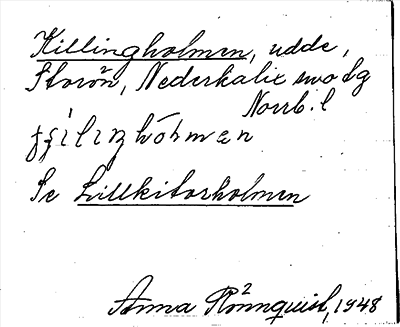 Killingholmen, udde,
Storön, Nederkalix sn o tg
Norrb. l
Se Lillkitorholmen
Anna Rönnquist, 1948